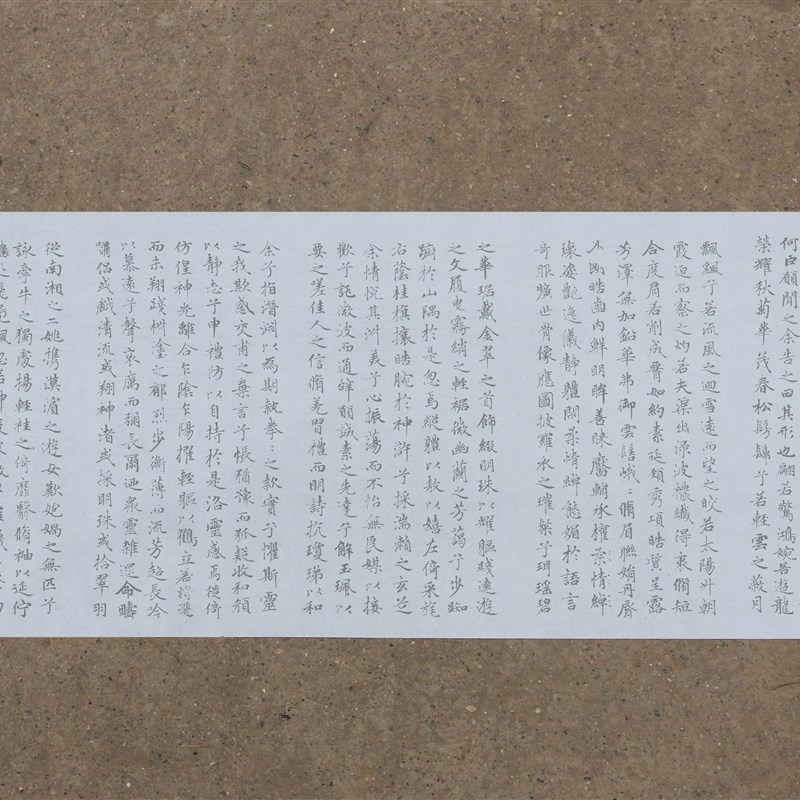 何臣願聞之余告之曰其形也翩若驚鴻婉若遊龍
榮耀秋菊華茂春松髣髴兮若輕雲之蔽月
飄飄兮若流風之迴雪遠而望之皎若太陽升朝
霞迫而察之灼若夫渠出淥波襛纖得衷脩短
合度肩若削成要如約素延頸秀項皓質呈露
芳澤無加鉛華弗御雲髻峨:脩眉聯娟丹脣
外朗皓齒內鮮明眸善睞靨輔承權柔情綽
瓌姿艷逸儀靜體閑柔情綽態媚於語言
奇服曠世骨像應圖披羅衣之璀粲兮珥瑤碧
之華琚戴金翠之首飾綴明珠以耀軀踐遠遊
之文履曳霧綃之輕裾微幽蘭之芳藹兮步踟
蹰於山隅於是忽焉縱體以敖以嬉左倚采旄
右蔭桂旗攘皓腕於神滸兮採湍瀨之玄芝
余情悅其淑美兮心振蕩而不怡無良媒以接
歡兮託微波而通辭願誠素之先達兮解玉珮以
要之嗟佳人之信脩羌習禮而明詩抗瓊珶以和
余兮指潛淵以為期執拳:之款實兮懼斯靈
之我欺感交甫之棄言兮悵猶豫而狐疑收和顏
以靜志兮申禮防以自持於是洛靈感焉徙倚
仿偟神光離合乍陰乍陽擢輕軀以鶴立若將飛
而未翔踐椒塗之郁烈步衡薄而流芳超長吟
以慕遠兮聲哀厲而彌長爾迺眾靈雜遝命疇
嘯侶或戲清流或翔神渚或採明珠或拾翠羽
從南湘之二姚攜漢濱之遊女歎媧之無匹兮
詠牽牛之獨處揚輕袿之倚靡翳脩袖以延佇